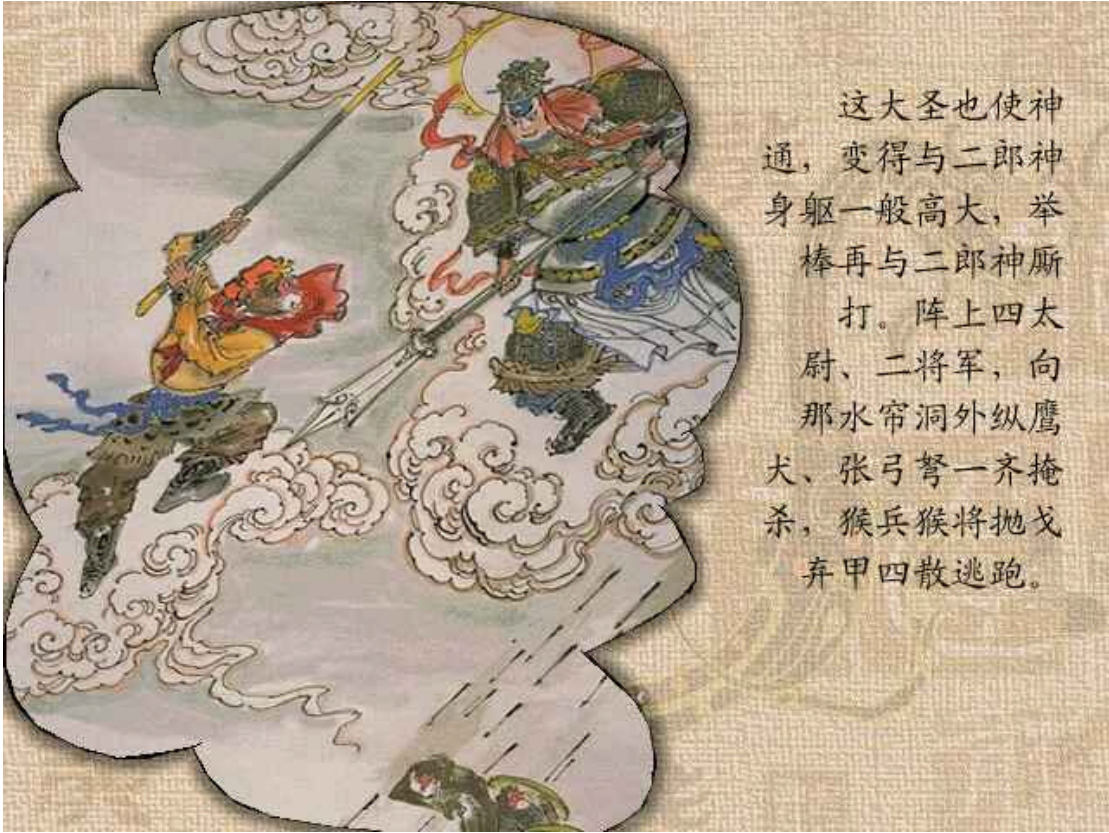 这大圣也使神
通，变得与二郎神
身躯一般高大，举
棒再与二郎神厮
打。阵上四太
尉、二将军，向
那水帘洞外纵鹰
犬、张弓弩一齐掩
杀，猴兵猴将抛戈
弃甲四散逃跑。